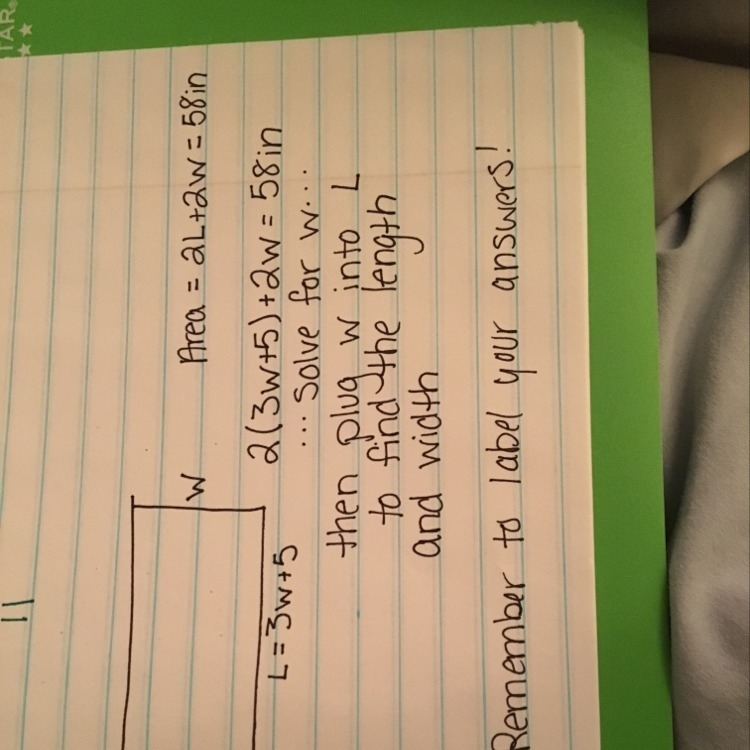 TAR®
11
W
Area = 2L+2W = 58in
L = 3W+5
2(3W+5)+2W = 58in
... Solve for W...
then plug W into L
to find the length
and width
Remember to label your answers!